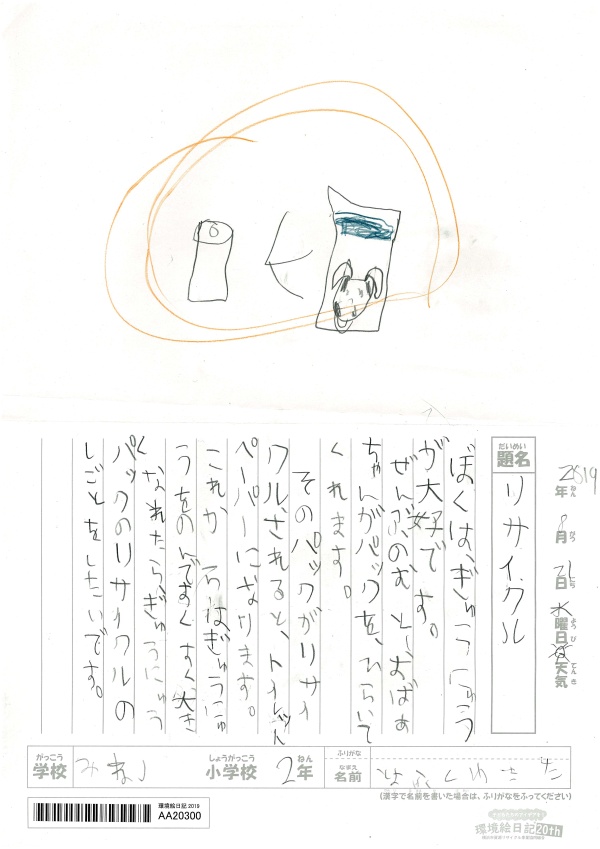 2019年 8月 21日 水曜日 天気
ねん がつ にち ようび てんき
だいめい
題名
リサイクル
ぼくは、ぎゅうにゅう
が大好です。
ぜんぶのむと、おばあ
ちゃんがパックを、ひらいて
くれます。
そのパックがリサイ
クルされると、トイレット
ペーパーになります。
これからはぎゅうにゅ
うをのんですくすく大き
くなれたらぎゅうにゅう
パックのリサイクルの
しごとをしたいです。
がっこう
学校
しょうがっこう
小学校
2年
ねん
ふりがな
なまえ
名前
(漢字で名前を書いた場合は、ふりがなをふってください)
環境絵日記 2019
AA20300
環境絵日記 20th